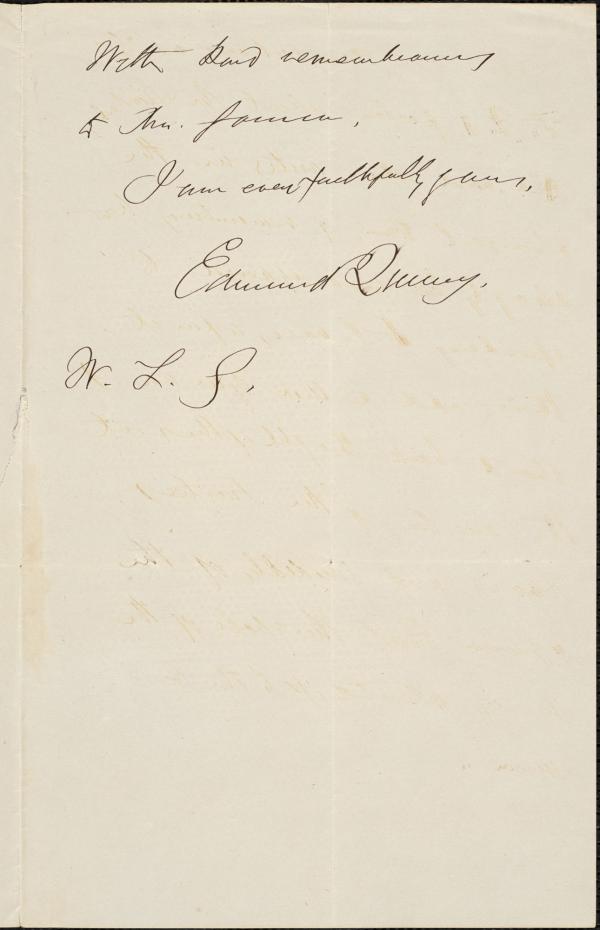 With kind remembrances
to Mrs. Garrison,
I am ever faithfully yours,
Edmund Quincy.
W. L. G.